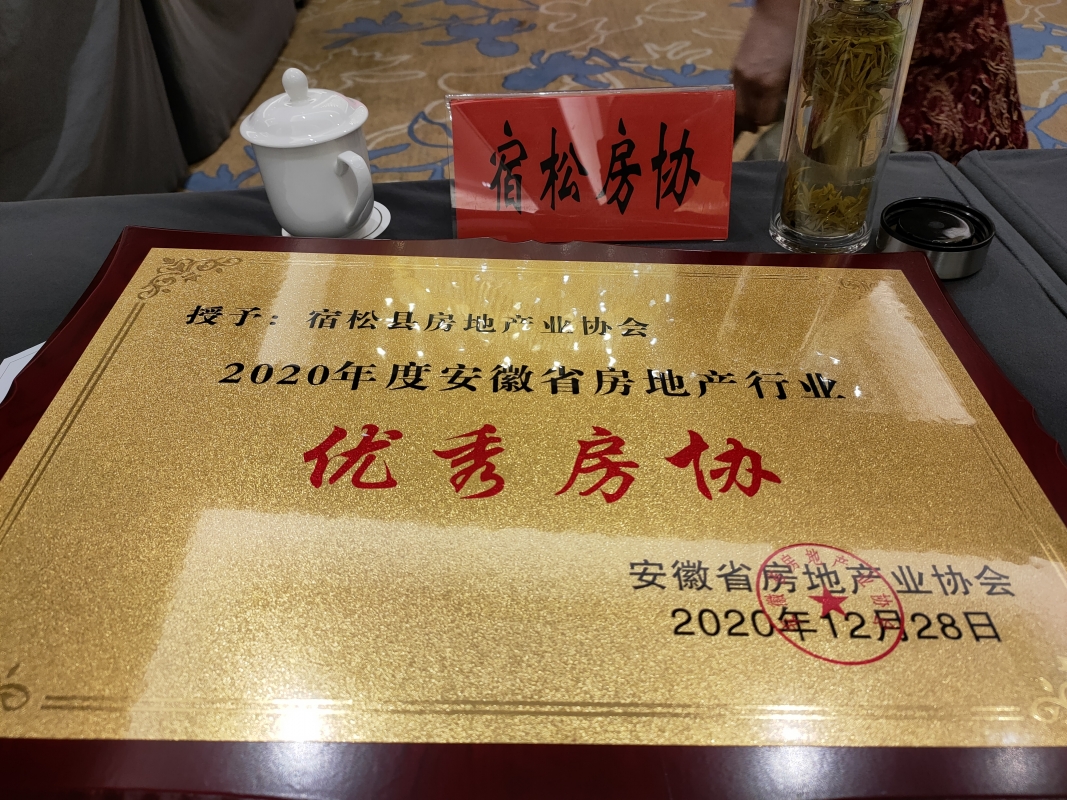 宿松房协
授予：宿松县房地产业协会
2020年度安徽省房地产行业
优秀房协
安徽省房地产业协会
2020年12月28日